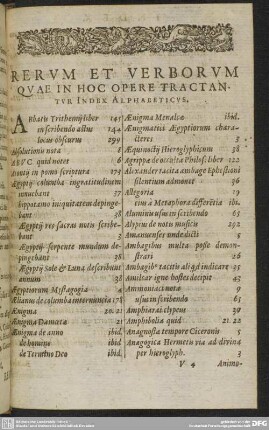 RERVM ET VERBORVM
QVAE IN HOC OPERE TRACTAN-
TVR INDEX ALPHABETICVS.
Abbatis Trithemij liber 145
in scribendo astus 144
locus obscurus 299
Absolutionis nota 8
ABVC quid notet 6
Accusij in pomo scriptura 173
Ægyptij columba ingratitudinem
innuebant 37
hippotamo iniquitatem depinge-
bant 38
Ægyptij res sacras notis scribe-
bant 3
Ægyptij serpente mundum de-
pingebant 38
Ægyptij Sole & Luna describunt
annum 38
Ægyptiorum Mystagogia 4
Ælianus de columba internuncia 178
Ænigma 20. 21
Ænigma Damæta 21
Ænigma de anno ibid.
de homine ibid.
de Terentino Deo ibid.
Ænigma Menalcæ ibid.
Ænigmatis Ægyptiorum chara-
cteres 3
Æquinoctij Hieroglyphicum 38
Agrippæ de occulta Philos: liber 122
Alexander tacita ambage Ephestioni
silentium admonet 36
Allegoria 19
eius à Metaphora differetia ibi.
Aluminis usus in scribendo 63
Alypius de notis musicis 292
Amanuenses unde dicti
Ambagibus multa posse demon-
strari 26
Ambagib9 tacitis aliqd indicare 35
Amiltar igne hostes decipit 43
Ammoniaci nota 9
usus in scribendo 65
Amphiarai clypeus 30
Amphibolia quid 21. 22
Anagnosta tempore Ciceronis 5
Anagogica Hermetis via ad divina
per hieroglyph. 3
V 4 Animo-